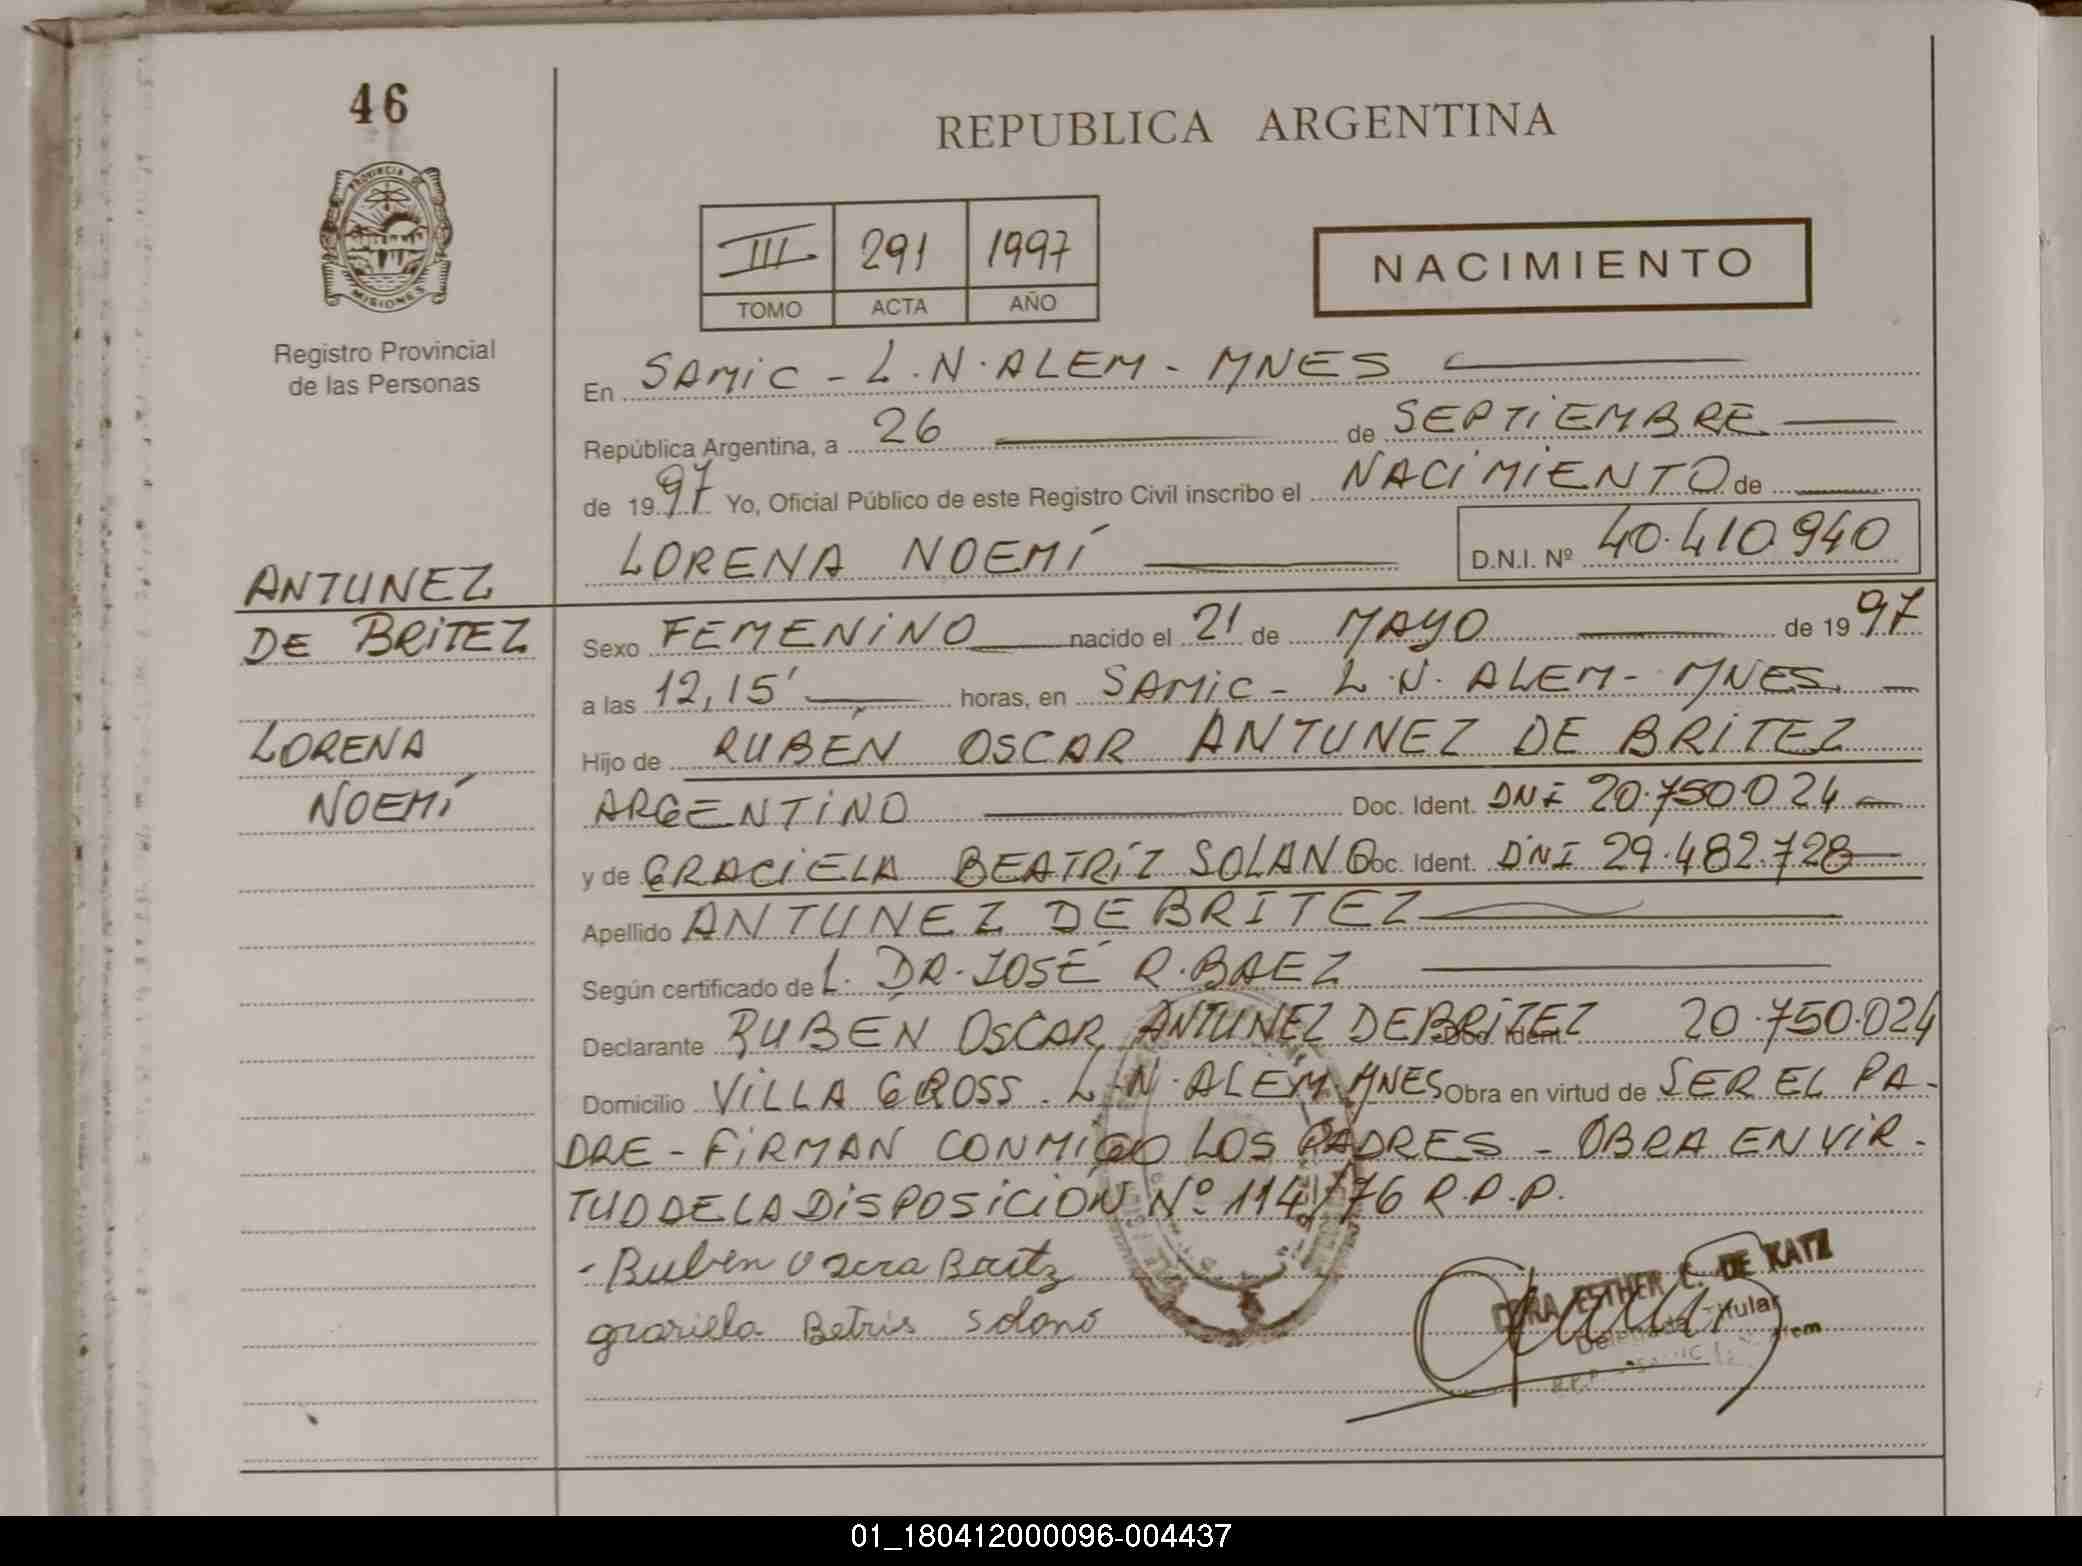 46
PROVINCIA DE
MISIONES
Registro Provincial
de las Personas
REPUBLICA ARGENTINA
III 291 1997
TOMO ACTA AÑO
NACIMIENTO
En SAMIC - L.N.ALEM - MNES
República Argentina, a 26 de SEPTIEMBRE
de 1997 Yo, Oficial Público de este Registro Civil inscribo el NACIMIENTO de
LORENA NOEMÍ D.N.I. Nº 40.410.940
ANTUNEZ
DE BRITEZ
LORENA
NOEMÍ
Sexo FEMENINO nacido el 21 de MAYO de 1997
a las 12,15' horas, en SAMIC - L.N. ALEM - MNES
Hijo de RUBÉN OSCAR ANTUNEZ DE BRITEZ
ARGENTINO Doc. Ident. DNI 20.750.024
y de GRACIELA BEATRÍZ SOLANO Doc. Ident. DNI 29.482.728
Apellido ANTUNEZ DE BRITEZ
Según certificado de L. DR. JOSÉ R. BAEZ
Declarante RUBÉN OSCAR ANTUNEZ DE BRITEZ Doc. Ident. 20.750.024
Domicilio VILLA GROSS. L.N.ALEM.MNES Obra en virtud de SER EL PA-
DRE - FIRMAN CONMIGO LOS PADRES - OBRA EN VIR-
TUD DE LA DISPOSICIÓN Nº 114/76 R.P.P.
- Ruben
graciela Betris Solano
ESTHER C. DE KATZ
Titular
01_180412000096-004437